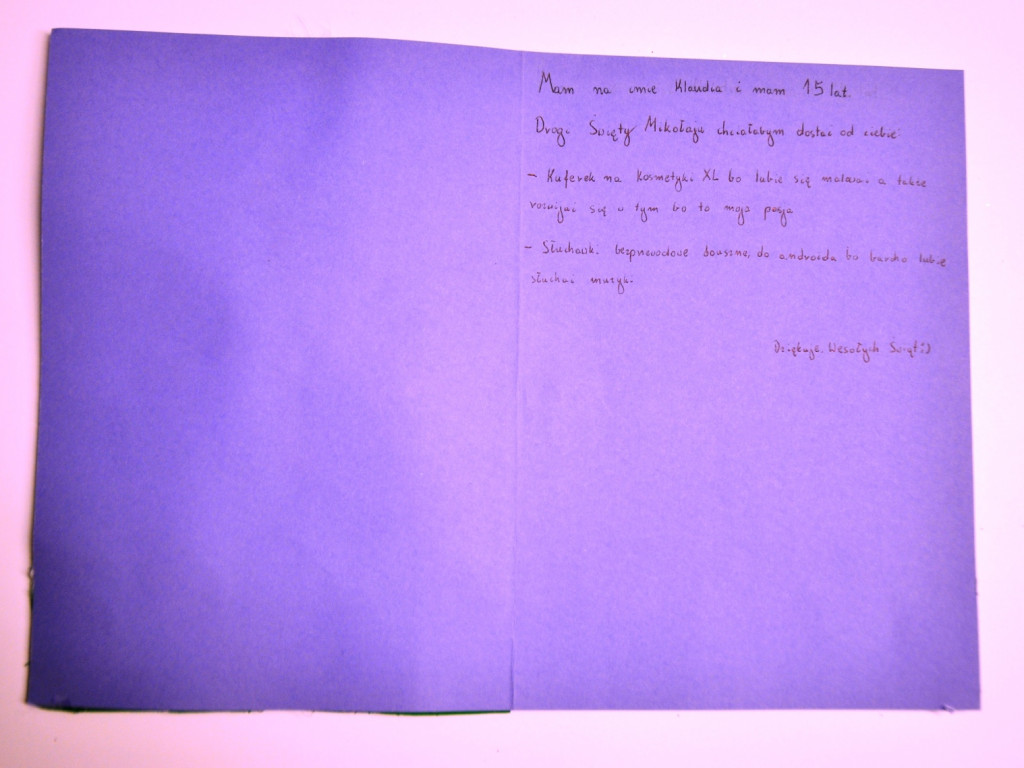 Mam na imie Klaudia i mam 15 lat.
Drogi Święty Mikołaju chciałabym dostać od ciebie
- Kuferek na kosmetyki XL bo lubie się malować a także
rozwijać się w tym bo to moja pasja
- Słuchawki bezprzewodowe douszne, do androida bo bardzo lubię
słuchać muzyki.
Dziękuję, Wesołych Świąt :)